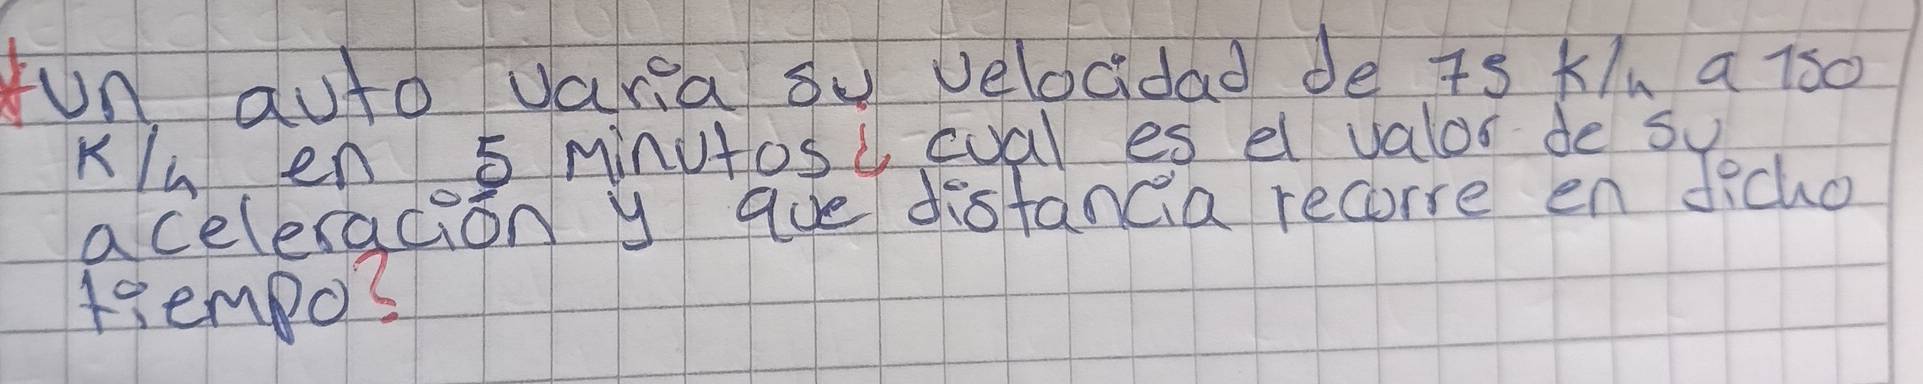 *Un auto varia su velocidad de 75 K/h a 150
K/h en 5 minutos ¿ cual es el valor de su
aceleración y que distancia recorre en dicho
tiempo?